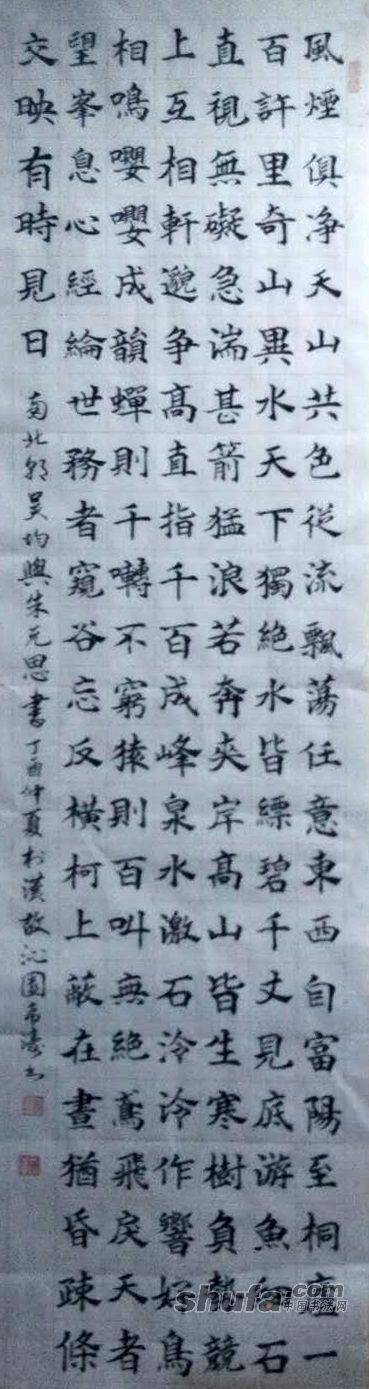 風煙俱净天山共色從流飄蕩任意東西自富陽至桐廬一
百許里奇山異水天下獨絕水皆縹碧千丈見底游魚細石
直視無礙急湍甚箭猛浪若奔夾岸高山皆生寒樹負勢競
上互相軒邈争高直指千百成峰泉水激石泠泠作響好鳥
相鳴嚶嚶成韻蟬則千囀不窮猿則百叫無絕鳶飛戾天者
望峯息心經綸世務者窺谷忘反橫柯上蔽在晝猶昏疎條
交映有時見日
南北朝吴均與朱元思書丁酉仲夏於漢故沁園
shufa.com
中国书法网